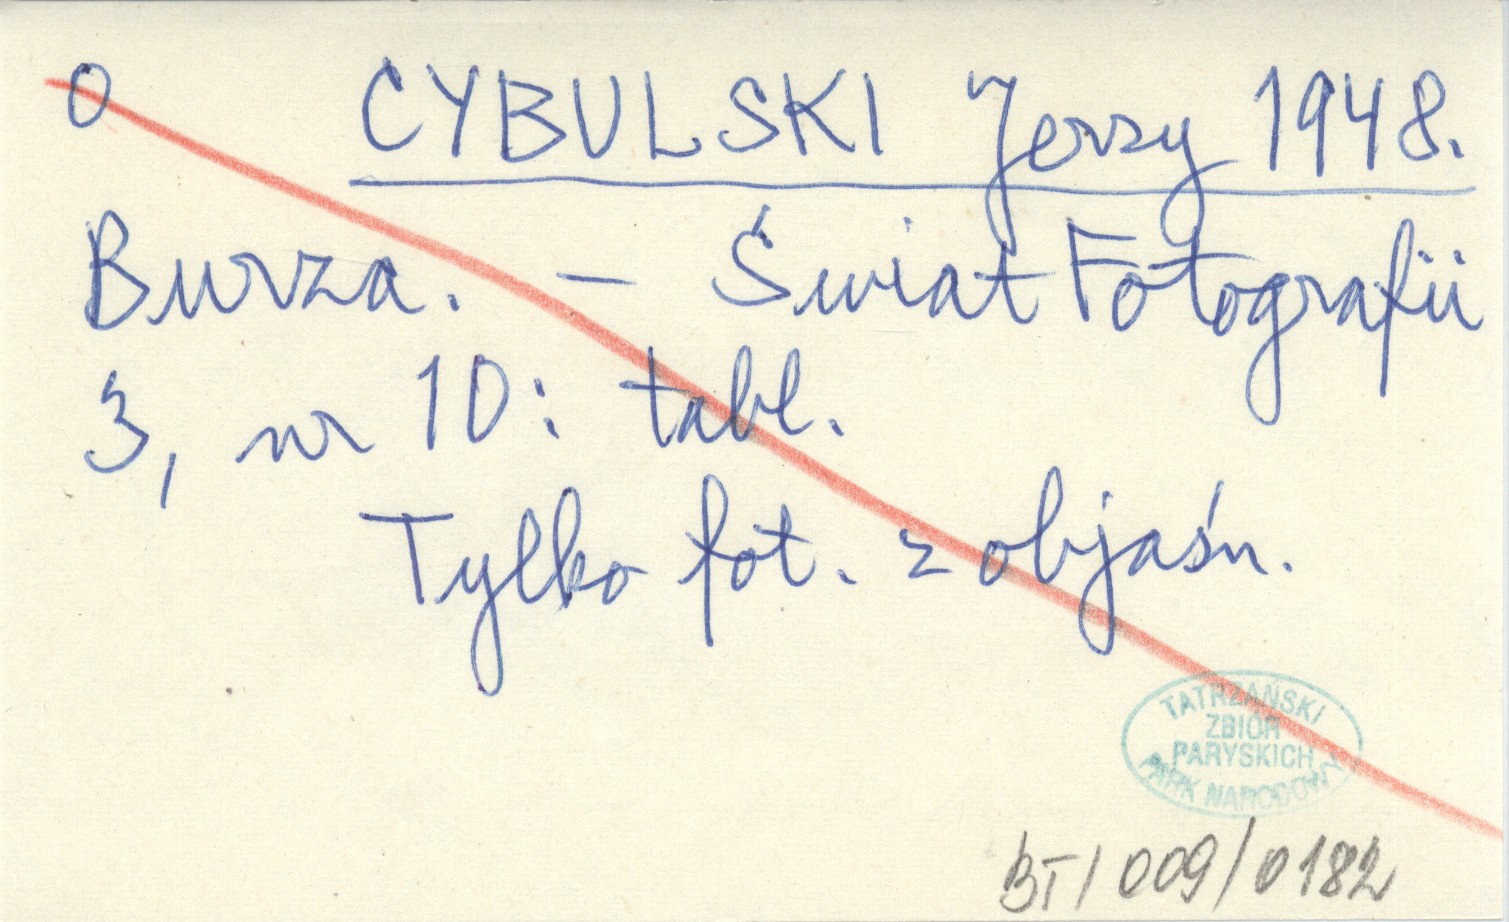 O CYBULSKI Jerzy 1948.
Burza. — Świat Fotografii
3, nr 10: tabl.
Tylko fot. z objaśn.
TATRZAŃSKI
ZBIÓR
PARYSKICH
PARK NARODOWY
BT/009/0182